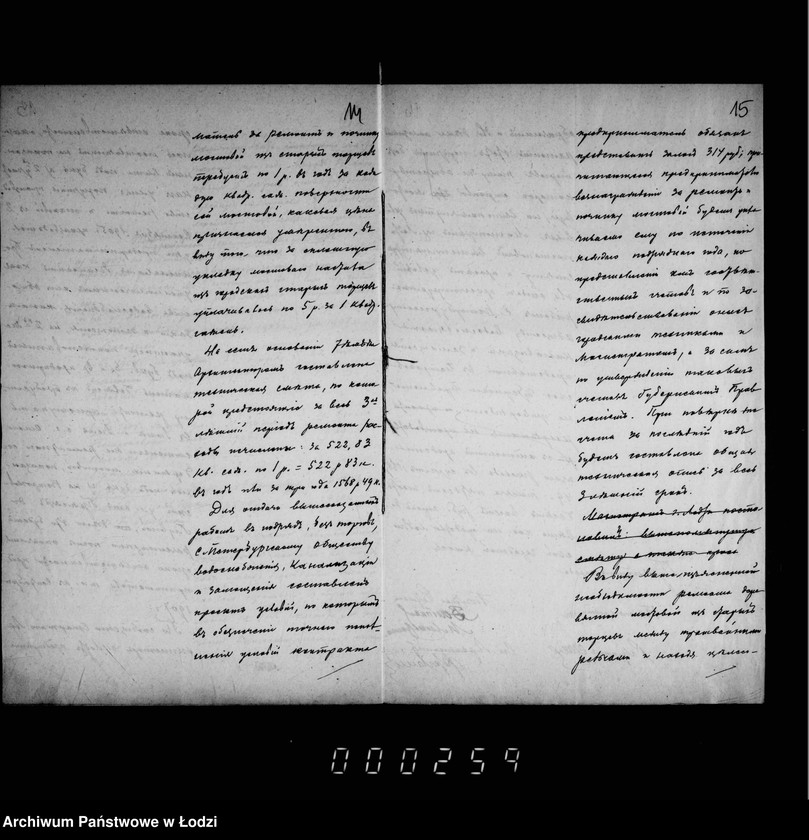 14
матель за ремонт и починку
мостовой из старых торцов
требует по 1 р. в год за каж
дую квад. саж. поверхности
сей мостовой, каковая цена
признается умеренною, в
виду того, что за сплошную
укладку мостовой
из городских старых торцов
уплачивалось по 5 р. за 1 квад.
сажень.
На сем основании
Архитектором составлена
техническая смета, по кото
рой предстоящие за весь 3х
летний период ремонта рас
ходы исчислены: за 522,83
кв. саж. по 1 р. = 522 р 83 к.
в год или за три года 1568 р 49 к.
Для отдачи вышеозначенных
работ в подряд, без торгов,
С Петербургскому Обществу
водоснабжения, Канализации
и Замощения составлен
проект условий, по которым
в обезпечение точного испол
нения условий контракта
15
предприниматель обязан
представить залог 314 руб;
читающееся предпринимателю
вознаграждение за ремонт и
починку мостовой будет упла
чиваемо ему по истечении
каждого подрядного года, по
представлении им соответ
ственных счетов и по за
свидетельствовании оных
городскими техниками и
Магистратом, а за сим
по утверждении таковых
счетов Губернским Прав
лением. При поверке
счета за последний год
будет составлена общая
техническая опись за весь
3х летний срок.
Магистрат г. Лодзи поста
новил: вышеупомянутую
смету а также проект
В виду вышеизложенной
необходимости ремонта дере
вянной мостовой из старых
торцов между трамвайными
рельсами и находя цены
000259
Archiwum Państwowe w Łodzi